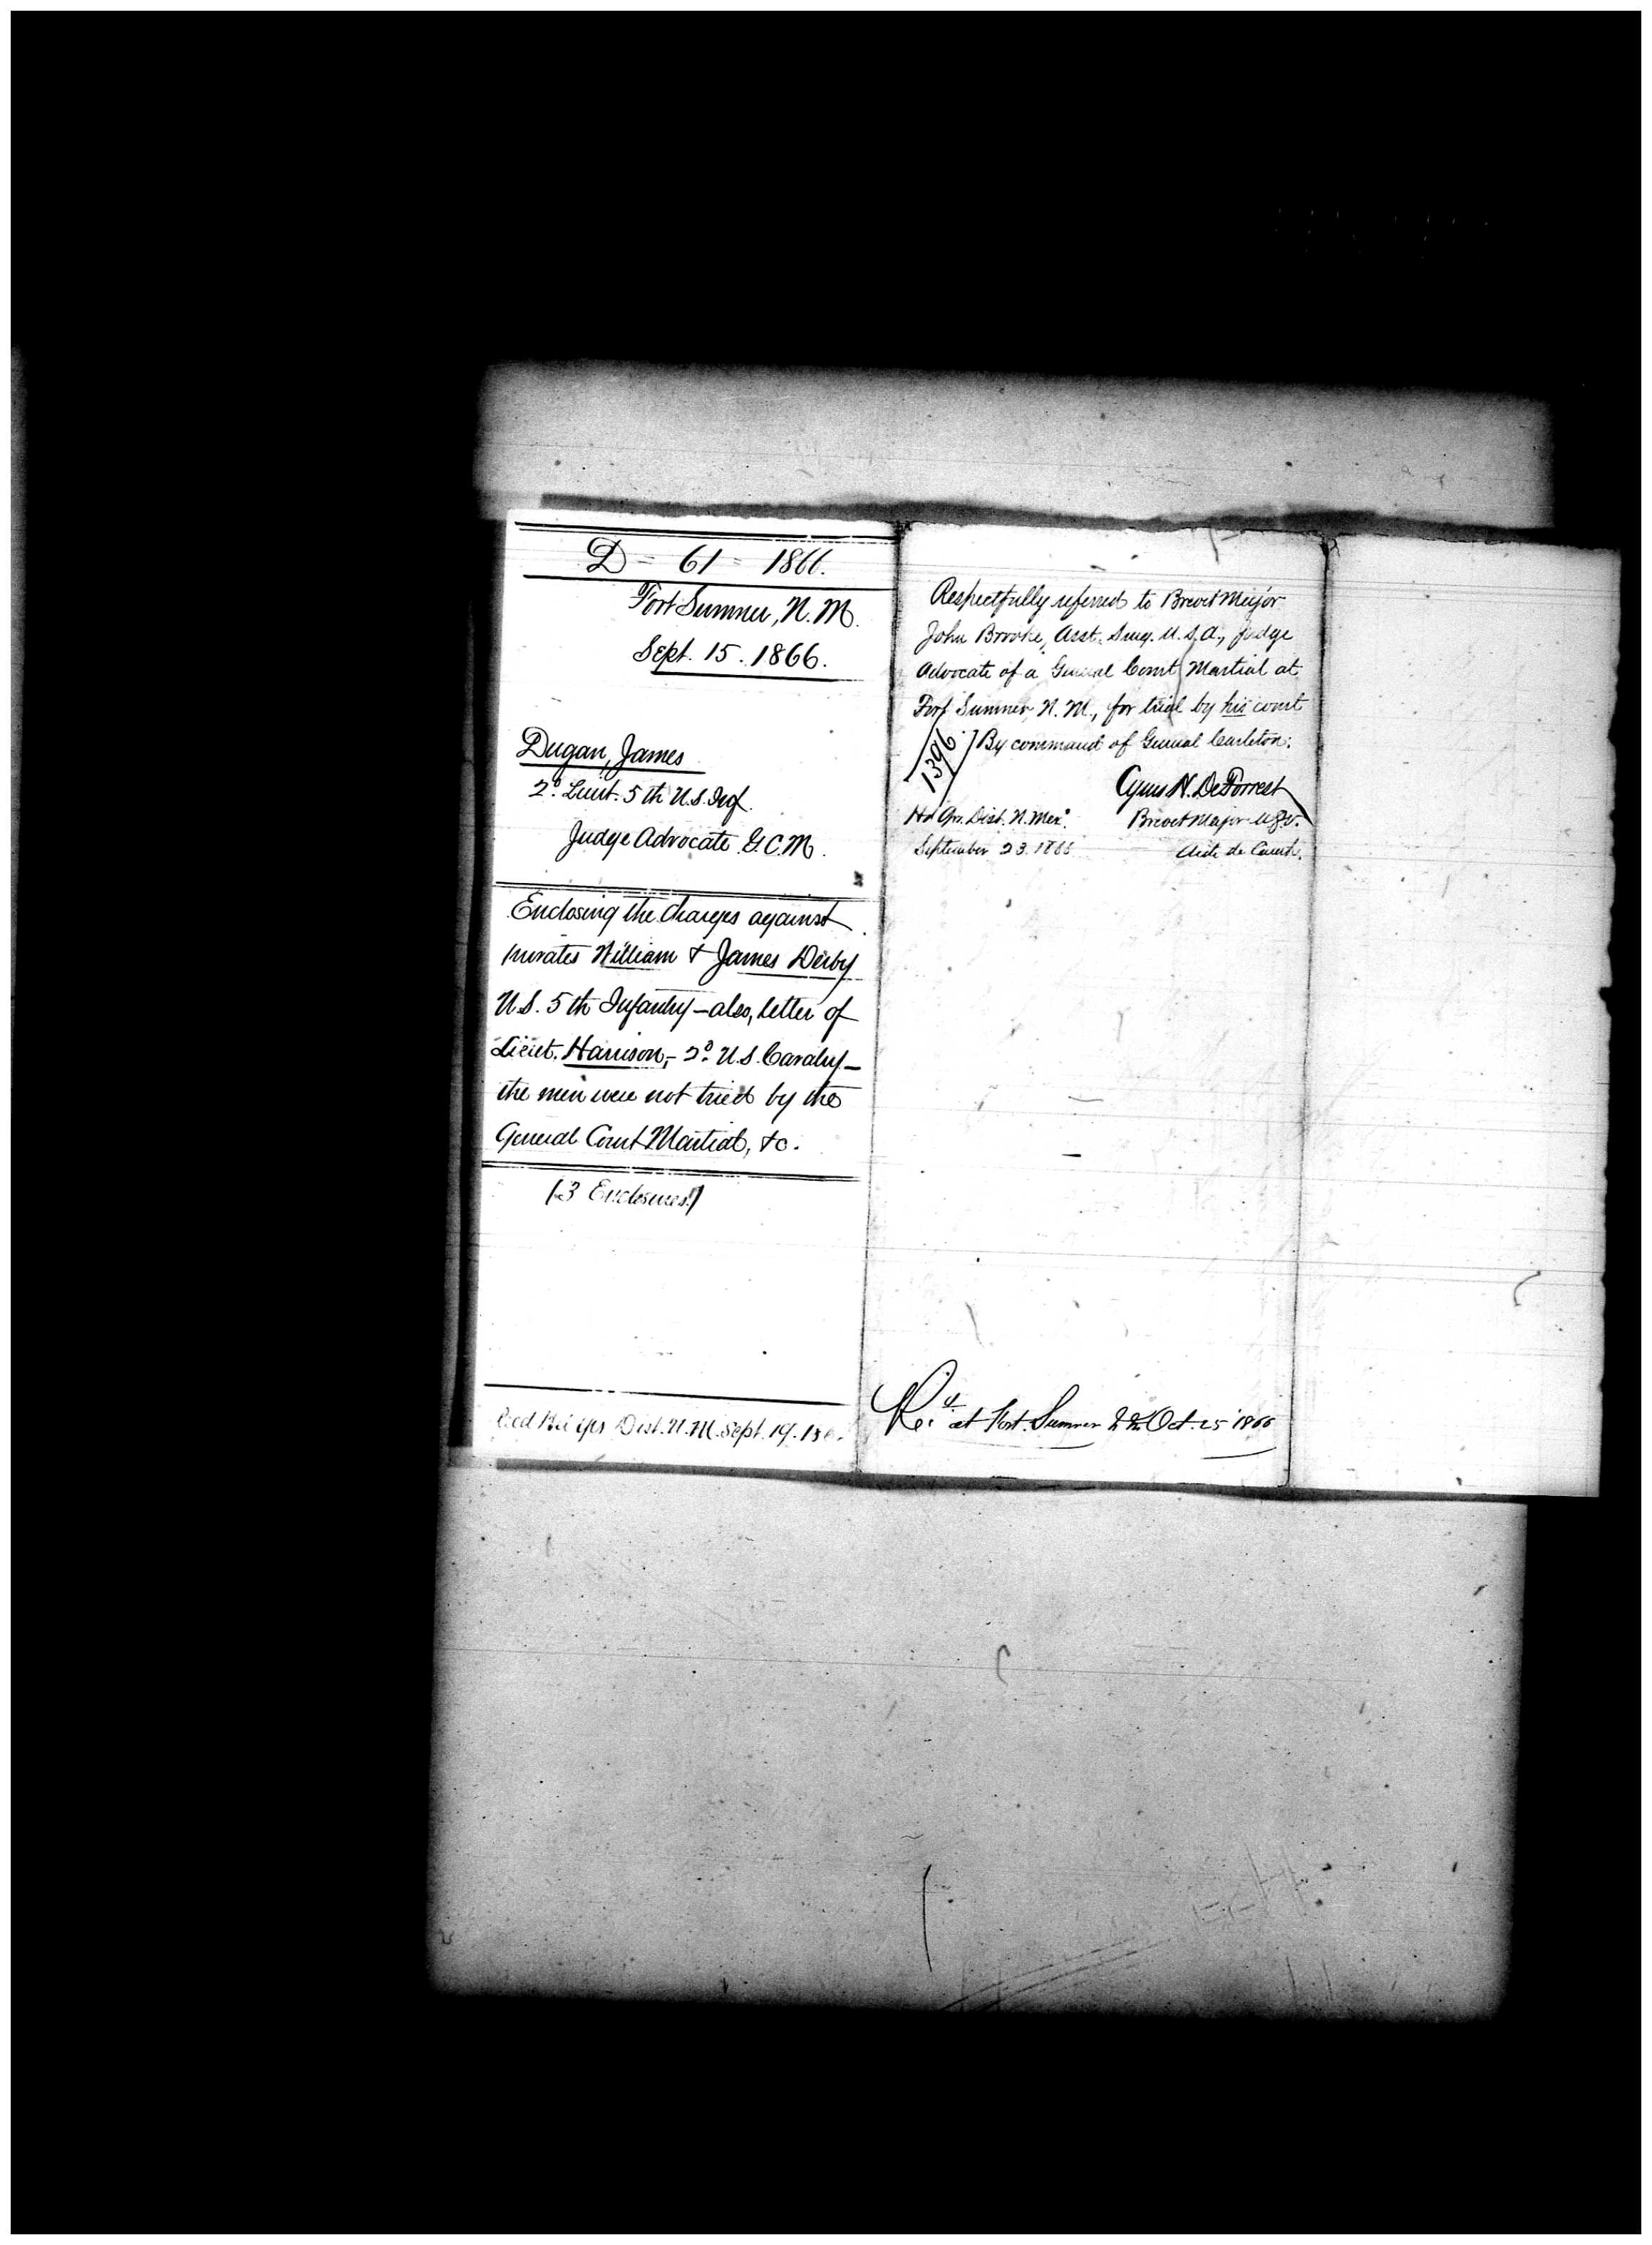 D - 61 - 1866.
Fort Sumner, N. M.
Sept. 15. 1866.
Dugan, James
2d Lieut. 5th U.S. Inf.
Judge Advocate G.C.M.
Enclosing the Charges against
privates William & James Derby
U.S. 5th Infantry – also, letter of
Lieut. Harrison, - 2d U.S. Cavalry –
the men were not tried by the
General Court Martial, &c.
(3 Enclosures)
Recd Hd Qrs Dist. N. M. Sept. 19. 186
Respectfully referred to Brevet Major
John Brooke, Asst. Surg. U.S.A., Judge
Advocate of a General Court Martial at
Fort Sumner N. M., for trial by his court
By command of General Carleton:
1396
Cyrus H. DeForrest
Hd Qrs. Dist. N. Mex.
Brevet Major U.S.V.
September 23. 1866
Aide de Camp.
Recd at Fort Sumner Oct. 25 1866